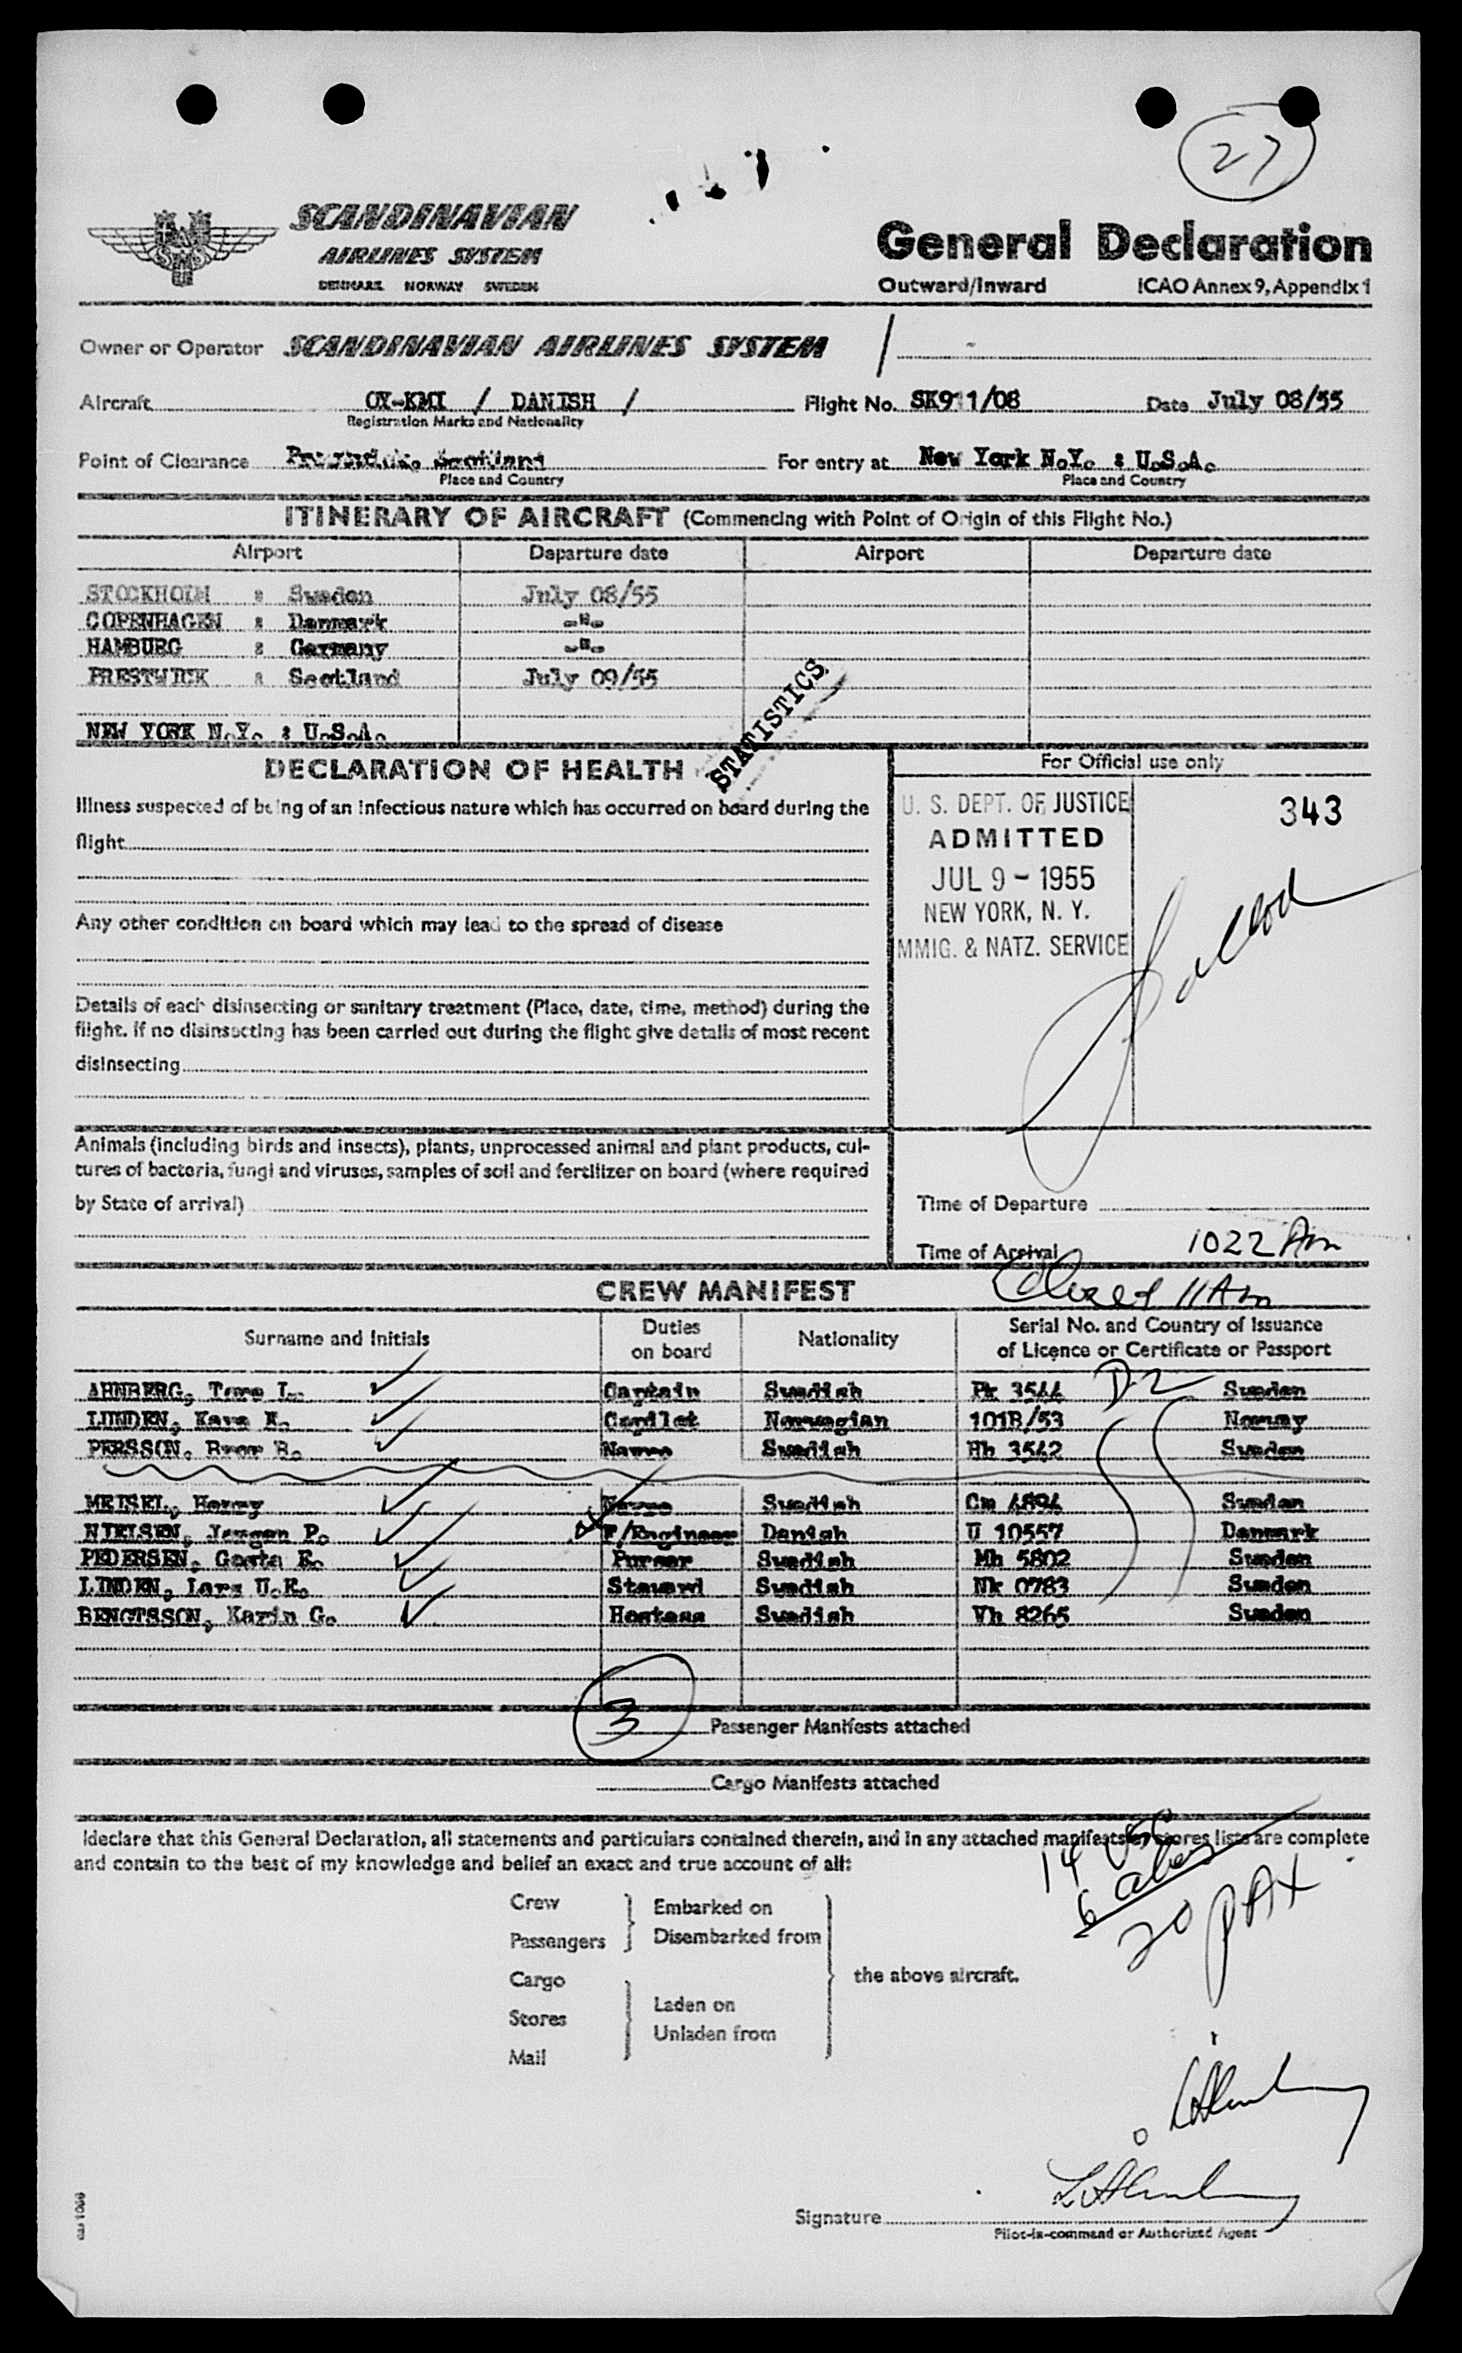 27
SCANDINAVIAN
AIRLINES SYSTEM
DENMARK NORWAY SWEDEN
General Declaration
Outward/Inward ICAO Annex 9, Appendix 1
Owner or Operator SCANDINAVIAN AIRLINES SYSTEM /
Aircraft OY-KMI / DANISH / Flight No. SK911/08 Date July 08/55
Registration Marks and Nationality
Point of Clearance Prestwick, Scotland For entry at New York N.Y. : U.S.A.
Place and Country Place and Country
ITINERARY OF AIRCRAFT (Commencing with Point of Origin of this Flight No.)
Airport Departure date Airport Departure date
STOCKHOLM : Sweden July 08/55
COPENHAGEN : Denmark -"-
HAMBURG : Germany -"-
PRESTWICK : Scotland July 09/55
NEW YORK N.Y. : U.S.A.
STATISTICS
DECLARATION OF HEALTH
Illness suspected of being of an infectious nature which has occurred on board during the
flight
Any other condition on board which may lead to the spread of disease
Details of each disinsecting or sanitary treatment (Place, date, time, method) during the
flight. If no disinsecting has been carried out during the flight give details of most recent
disinsecting
Animals (including birds and insects), plants, unprocessed animal and plant products, cul-
tures of bacteria, fungi and viruses, samples of soil and fertilizer on board (where required
by State of arrival)
For Official use only
U. S. DEPT. OF JUSTICE
ADMITTED
JUL 9 - 1955
NEW YORK, N. Y.
MMIG. & NATZ. SERVICE
343
Time of Departure
Time of Arrival 1022 Am
Cleared 11 Am
CREW MANIFEST
Surname and Initials Duties on board Nationality Serial No. and Country of Issuance of Licence or Certificate or Passport
AHNBERG, Tore L. Captain Swedish Pk 3544 D2 Sweden
LUNDEN, Kaya E. Copilot Norwegian 101B/53 Norway
PERSSON, Bror B. Navno Swedish Hh 3542 Sweden
MEISEL, Henry Navno Swedish Cm 4894 Sweden
NIELSEN, Jorgen P. F/Engineer Danish U 10557 Denmark
PEDERSEN, Gosta E. Purser Swedish Mh 5802 Sweden
LINDEN, Lars U.E. Steward Swedish Nk 0783 Sweden
BENGTSSON, Karin G. Hostess Swedish Vh 8265 Sweden
3 Passenger Manifests attached
Cargo Manifests attached
I declare that this General Declaration, all statements and particulars contained therein, and in any attached manifests or stores lists are complete
and contain to the best of my knowledge and belief an exact and true account of all:
14 USC
6 alien
20 PAX
Crew
Passengers
Embarked on
Disembarked from
Cargo
Stores
Mail
Laden on
Unladen from
the above aircraft.
Signature
Pilot-in-command or Authorized Agent